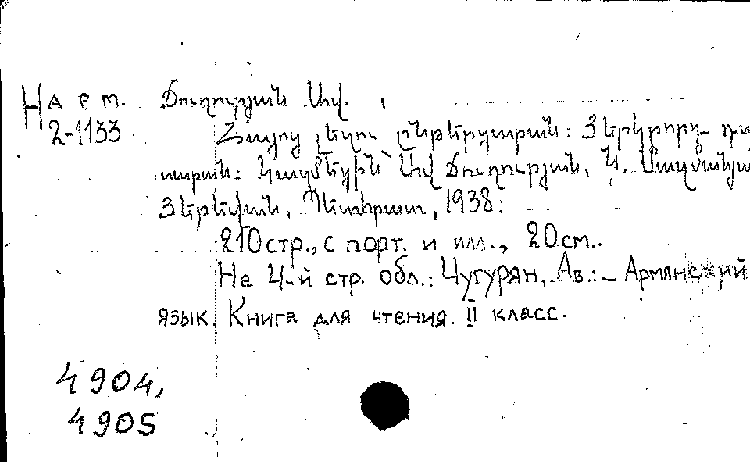 На ст. Ճուղուրյան Ավ.
2-1133 Հայոց լեզու ընթերցարան: Երկրորդ դա-
սարան: Կազմեցին՝ Ավ Ճուղուրյան,
Յերեվան, Պետհրատ, 1938:
210стр., с порт. и илл., 20см.
На 4-й стр. обл.: Чугурян, Ав.: — Армянский
язык. Книга для чтения. II класс.
4904,
4905